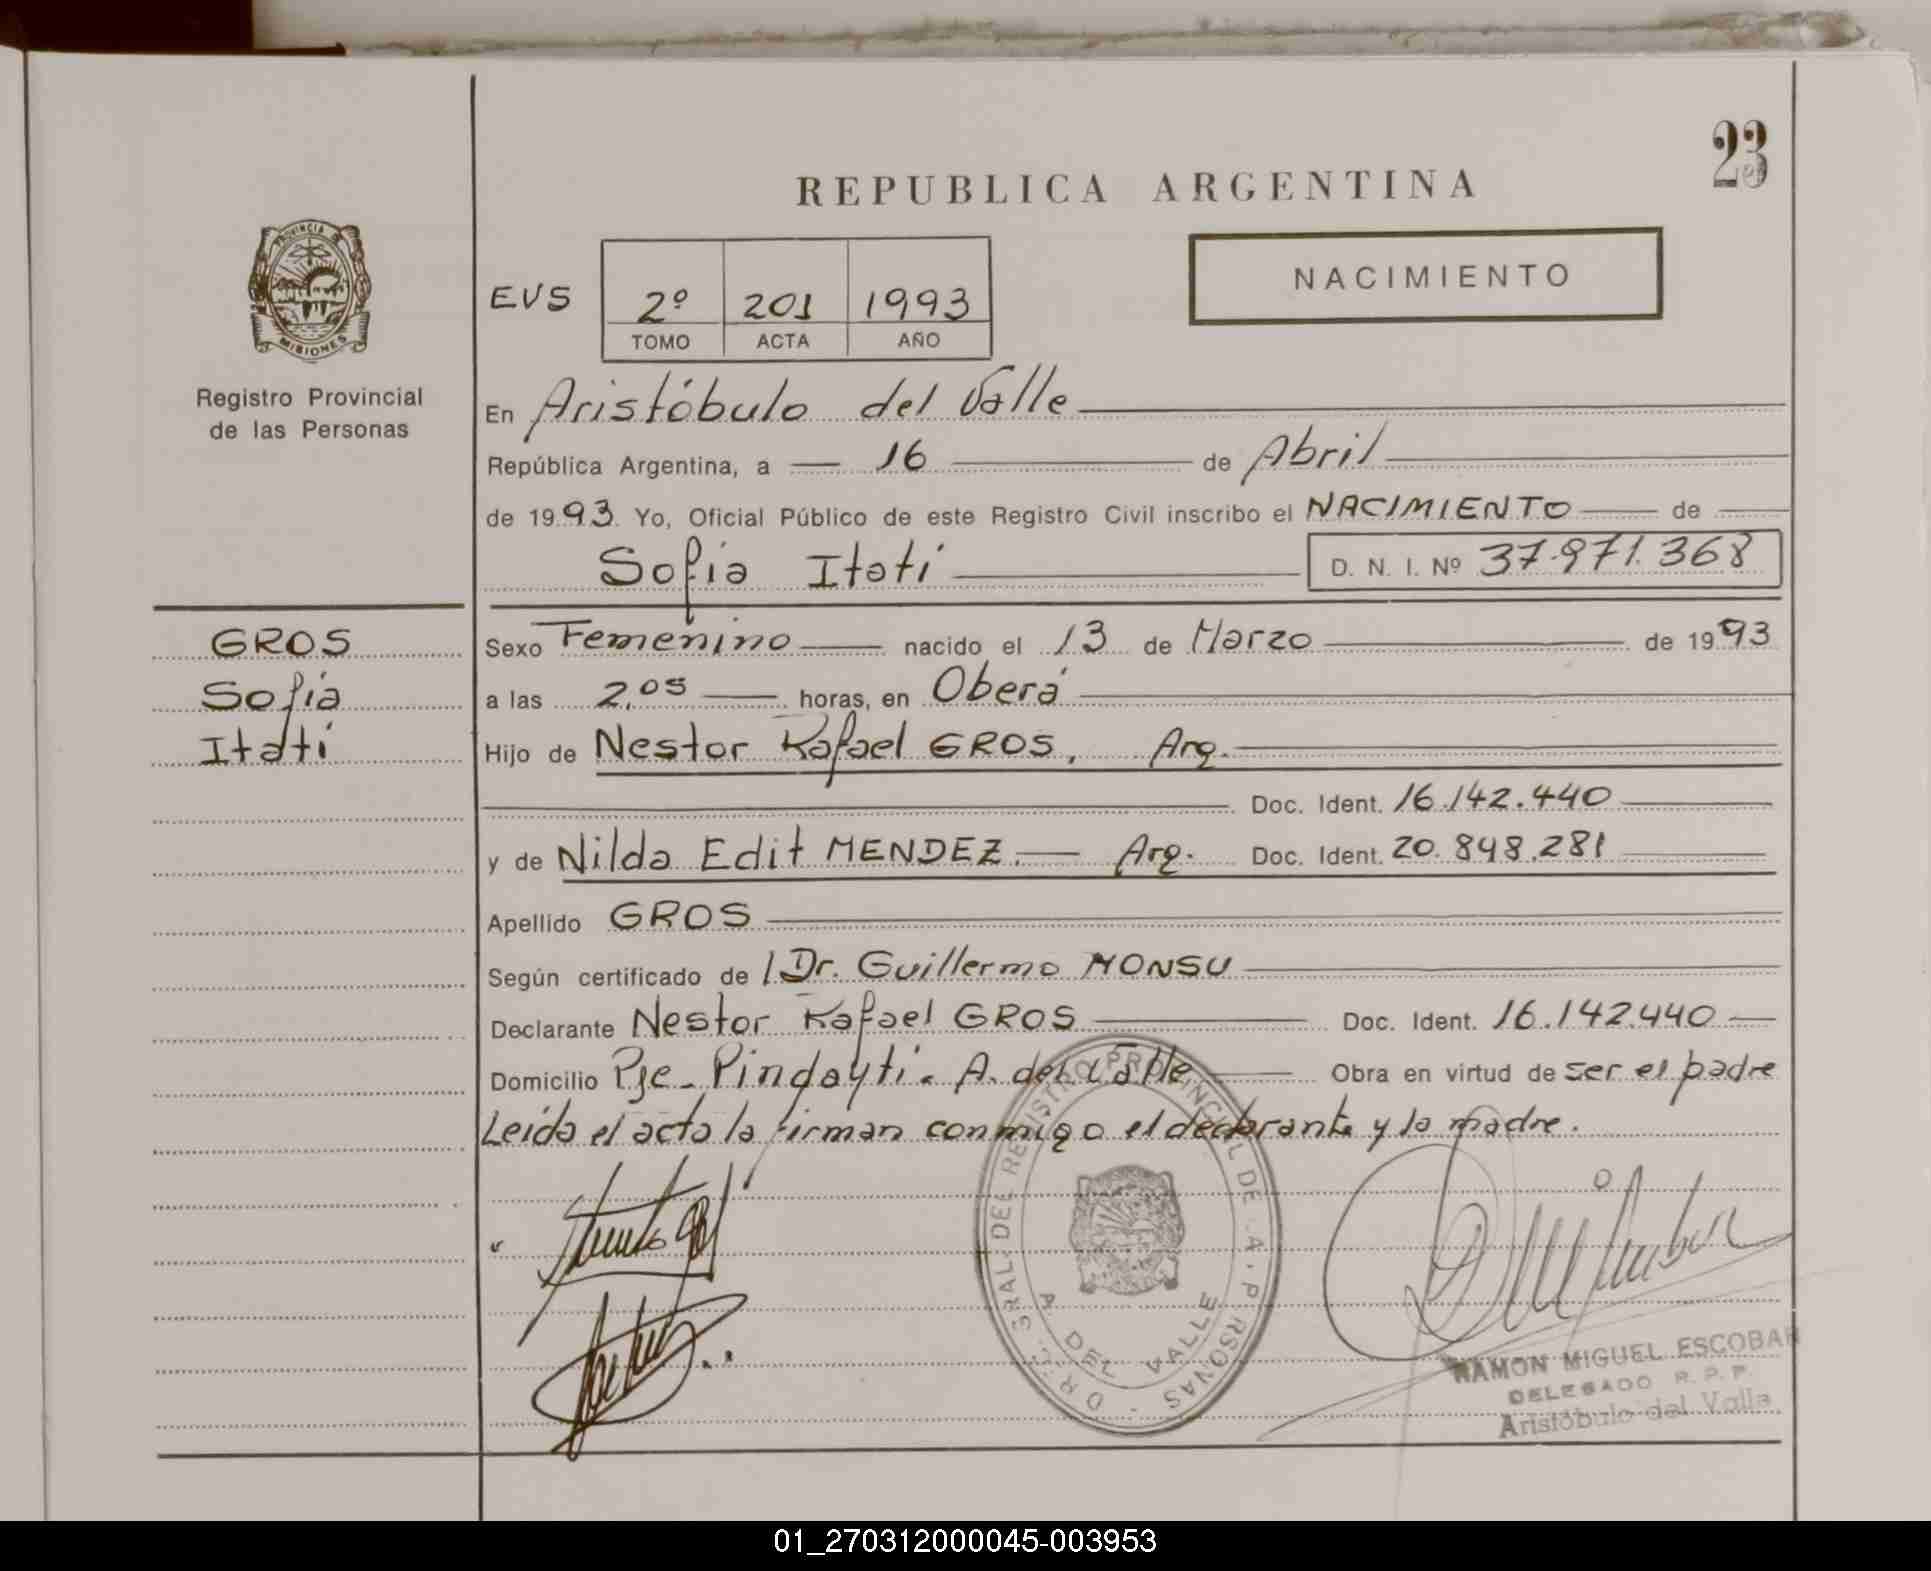 23
REPUBLICA ARGENTINA
PROVINCIA DE
MISIONES
Registro Provincial
de las Personas
NACIMIENTO
EVS 2º 201 1993
TOMO ACTA AÑO
En Aristóbulo del Valle
República Argentina, a 16 de Abril
de 1993. Yo, Oficial Público de este Registro Civil inscribo el NACIMIENTO de
Sofia Itatí D. N. I. Nº 37.971.368
GROS
Sofia
Itatí
Sexo Femenino nacido el 13 de Marzo de 1993
a las 2,05 horas, en Oberá
Hijo de Nestor Rafael GROS, Arg.
Doc. Ident. 16.142.440
y de Nilda Edit MENDEZ. Arg. Doc. Ident. 20.848.281
Apellido GROS
Según certificado de Dr. Guillermo MONSU
Declarante Nestor Rafael GROS Doc. Ident. 16.142.440
Domicilio Pje. Pindaytí. A. del Valle Obra en virtud de ser el padre
Leída el acta la firman conmigo el declarante y la madre.
GRAL. DEL REGISTRO PROVINCIAL DE
A. DEL VALLE
RAMON MIGUEL ESCOBAR
DELEGADO R. P. P.
Aristóbulo del Valle
01_270312000045-003953